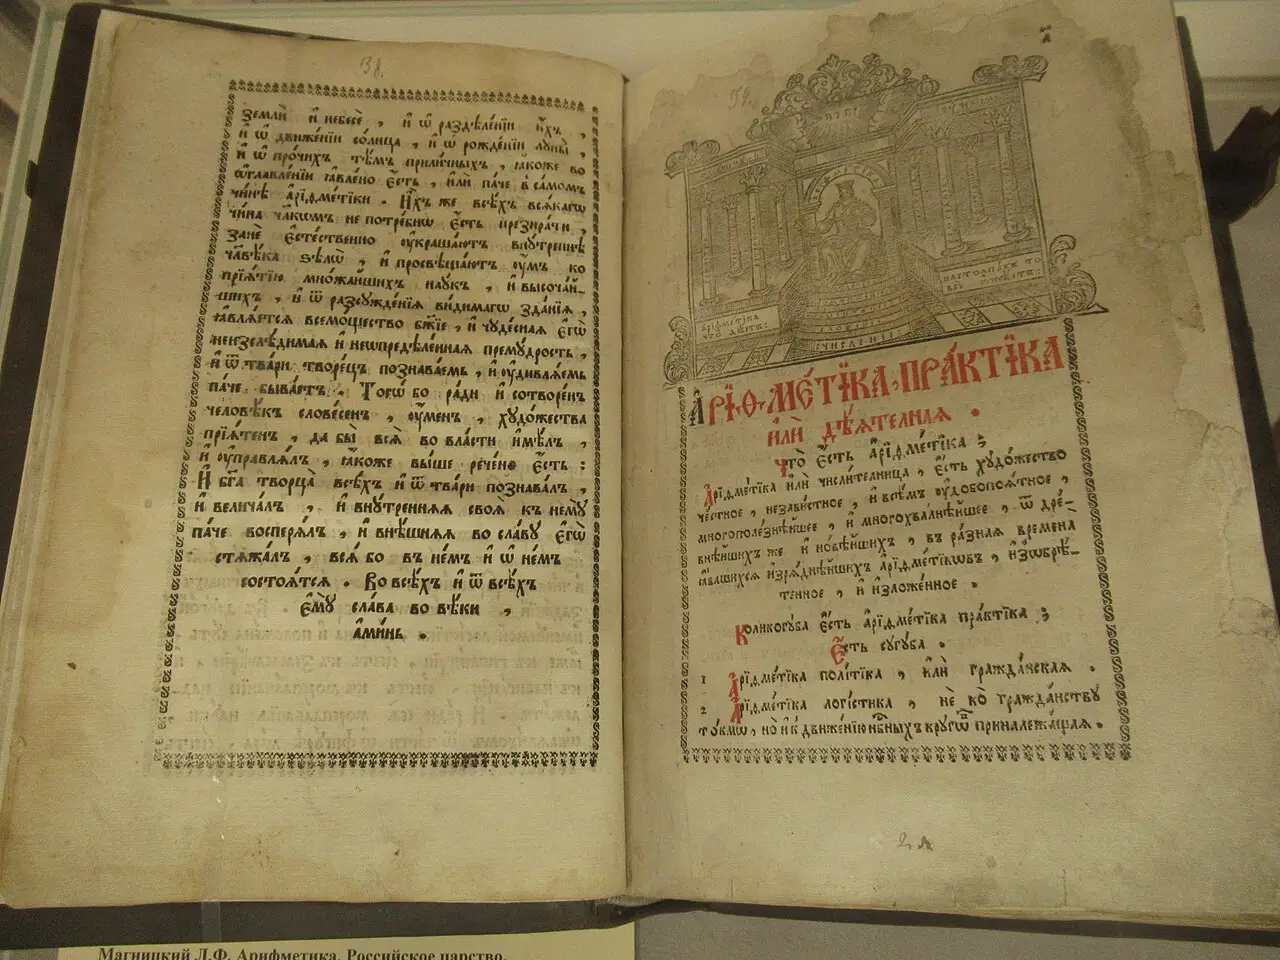 землѝ и҆ небесѐ , и҆ ѿ раздѣле́нїи и҆́хъ ,
и҆ ѿ движе́нїи со́лнца , и҆ ѿ рожде́нїи луны̀ ,
и҆ ѿ про́чихъ тѣ́мъ прили́чныхъ , ꙗ҆́коже во
ѡ҆главле́нїи ꙗ҆вле́но є҆́сть , и҆лѝ па́че в са́момъ
чи́нѣ а҆рїѳме́тїки . И҆́хъ же всѣ́хъ всѧ́кагѡ
чи́на чл҃кѡмъ не потре́бнѡ є҆́сть презира́ти ,
занѐ є҆сте́ственнѡ ᲂу҆краша́ютъ вну́треннѣ
чл҃вѣ́ка ѕѣлѡ̀ , и҆ просвѣща́ютъ ᲂу҆́мъ ко
прїѧ́тїю мно́жайшихъ наꙋ́къ , и҆ высоча́й-
шихъ , и҆ ѿ разсꙋжде́нїѧ ви́димагѡ зда́нїѧ ,
ꙗ҆влѧ́етсѧ всемо́щество бж҃їе , и҆ чꙋде́снаѧ є҆гѡ̀
неизслѣ́димаѧ и҆ неѡпредѣле́ннаѧ премꙋ́дрость ,
и҆ ѿ тва́ри творе́цъ познава́емь , и҆ ᲂу҆дивлѧ́емь
па́че быва́етъ . Тогѡ́ бо ра́ди и҆ сотворе́нъ
человѣ́къ слове́сенъ , ᲂу҆́менъ , хꙋдо́жества
прїѧ́тенъ , да бы̀ всѧ̑ во вла́сти и҆мѣ́лъ ,
и҆ ᲂу҆правлѧ́лъ , ꙗ҆́коже вы́ше рече́но є҆́сть :
И҆ бг҃а творца̀ всѣ́хъ и҆ ѿ тва́ри познава́лъ ,
и҆ велича́лъ , и҆ внꙋ́треннѧѧ своѧ̑ къ немꙋ̀
па́че восперѧ́лъ , и҆ внѣ́шнѧѧ во сла́вꙋ є҆гѡ̀
стѧжа́лъ , всѧ̑ бо въ не́мъ и҆ ѡ не́мъ
состоѧ́тсѧ . Во всѣ́хъ и҆ ѿ всѣ́хъ
є҆мꙋ̀ сла́ва во вѣ́ки ,
а҆ми́нь .
а҆рїѳме́тїка
что̀ дѣ́етъ :
счисленїе
А҆РІѲМЕ́ТЇКА , ПРА́КТЇКА
и҆лѝ дѣ́ѧтелнаѧ .
Что̀ є҆́сть а҆рїѳме́тїка ;
А҆рїѳме́тїка и҆лѝ числи́телница , є҆́сть хꙋдо́жество
че́стное , незави́стное , и҆ всѣ́мъ ᲂу҆добопоѧ́тное ,
многополе́знѣйшее , и҆ многохва́лнѣйшее , ѿ дре́-
внѣйшихъ же и҆ но́вѣйшихъ , въ ра́знаѧ времена̀
ꙗ҆вльшихсѧ и҆зрѧ́днѣйшихъ а҆рїѳме́тїкѡвъ , и҆з̾ѡбрѣ́-
тенное , и҆ и҆зложе́нное .
Коликогꙋ́ба є҆́сть а҆рїѳме́тїка пра́ктїка ;
Є҆́сть сꙋгꙋ́ба .
1 А҆рїѳме́тїка полі́тїка , и҆лѝ гражда́нскаѧ .
2 А҆рїѳме́тїка логі́стїка , не ко̀ гражда́нствꙋ
то́кмѡ , но и҆ к движе́нїю нб҃ныхъ крꙋгѡ́въ принадлежа́щаѧ .
Магницкий Л.Ф. Арифметика. Российское царство.